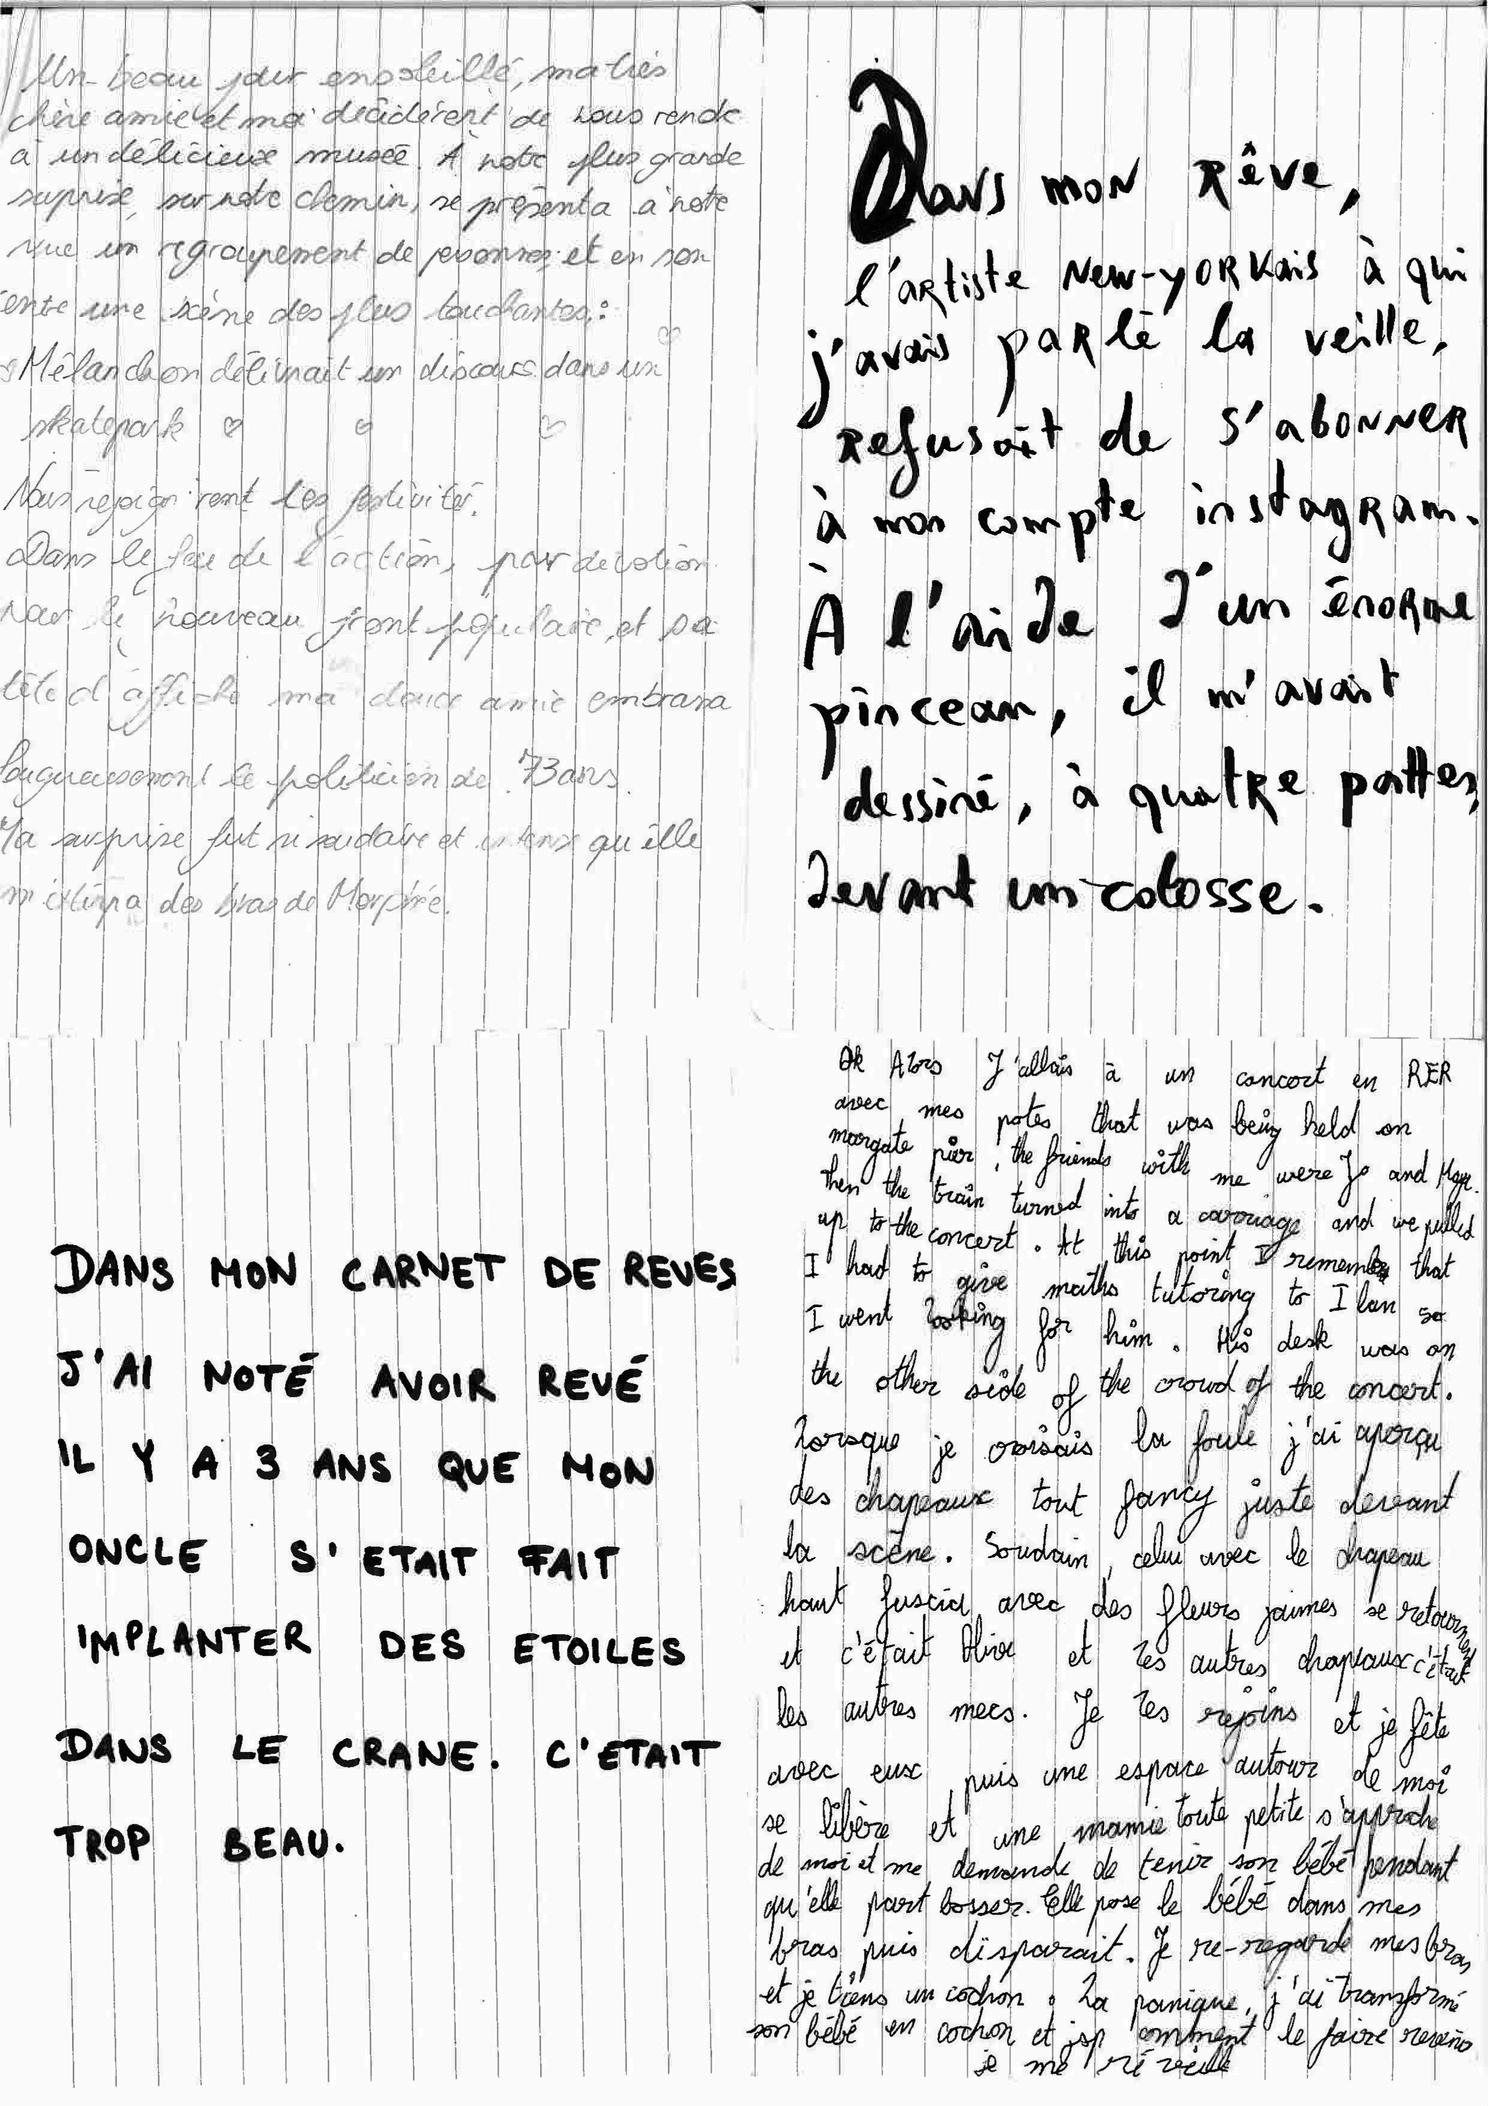 Un beau jour ensoleillé, ma très
chère amie et moi décidèrent de nous rendre
à un délicieux musée. À notre plus grande
surprise, sur notre chemin, se présenta à notre
vue un regroupement de personnes, et en son
centre une scène des plus touchantes :
Mélanchon délivrait un discours dans un
skatepark
Nous rejoignirent les festivités.
Dans le feu de l'action, par dévotion
pour le nouveau front populaire, et sa
tête d'affiche ma douce amie embrassa
fougueusement le politicien de 73 ans.
Ma surprise fut si soudaine et intense qu'elle
m'extirpa des bras de Morphée.
Dans mon rêve,
l'artiste new-yorkais à qui
j'avais parlé la veille,
refusait de s'abonner
à mon compte instagram.
À l'aide d'un énorme
pinceau, il m'avait
dessiné, à quatre pattes,
devant un colosse.
DANS MON CARNET DE REVES
J'AI NOTÉ AVOIR REVÉ
IL Y A 3 ANS QUE MON
ONCLE S'ETAIT FAIT
IMPLANTER DES ETOILES
DANS LE CRANE. C'ETAIT
TROP BEAU.
Ok Alors J'allais à un concert en RER
avec mes potes that was being held on
margate pier, the friends with me were Jo and
then the train turned into a carriage and we pulled
up to the concert. At this point I remember that
I had to give maths tutoring to Ilan so
I went looking for him. His desk was on
the other side of the crowd of the concert.
Lorsque je croisais la foule j'ai aperçu
des chapeaux tout fancy juste devant
la scène. Soudain, celui avec le chapeau
haut fuscia avec des fleurs jaunes se retournent
et c'était Olive et les autres chapeaux c'était
les autres mecs. Je les rejoins et je fête
avec eux puis une espace autour de moi
se libère et une mamie toute petite s'approche
de moi et me demande de tenir son bébé pendant
qu'elle part bosser. Elle pose le bébé dans mes
bras puis disparait. Je re-regarde mes bras
et je tiens un cochon. La panique, j'ai transformé
son bébé en cochon et jsp comment le faire revenir
je me réveille